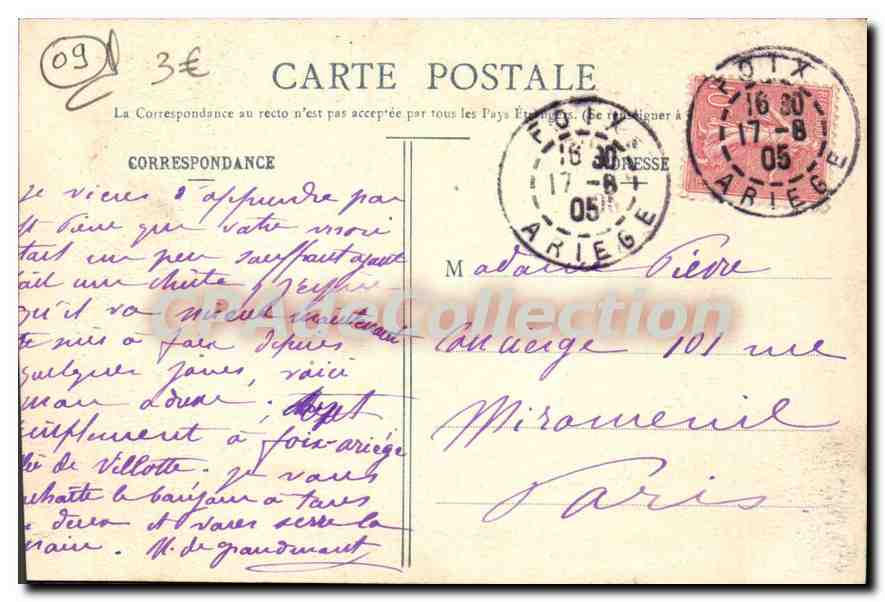 09
3€
CARTE POSTALE
La Correspondance au recto n'est pas acceptée par tous les Pays Étrangers. (Se renseigner à
CORRESPONDANCE
ADRESSE
FOIX
16 30
17 -8
05
ARIEGE
FOIX
16 30
17 -8
05
ARIEGE
je viens d'apprendre par
que votre mari
tait un peu souffrant ayant
fait une chûte, j'espère
qu'il va mieux maintenant
je suis à foix depuis
quelques jours, voici
mon adresse;
simplement à foix-ariège
de Villotte. je vous
souhaite le bonjour à tous
deux et vous serre la
main. M. de grandmont
Madame Pievre
Concierge 101 rue
Miromenil
Paris
CPAdeCollection